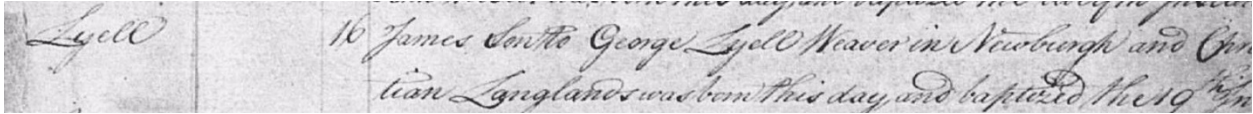 Lyell 16 James Son to George Lyell Weaver in Newburgh and Chri
tian Langlands was born this day, and baptized the 19th In